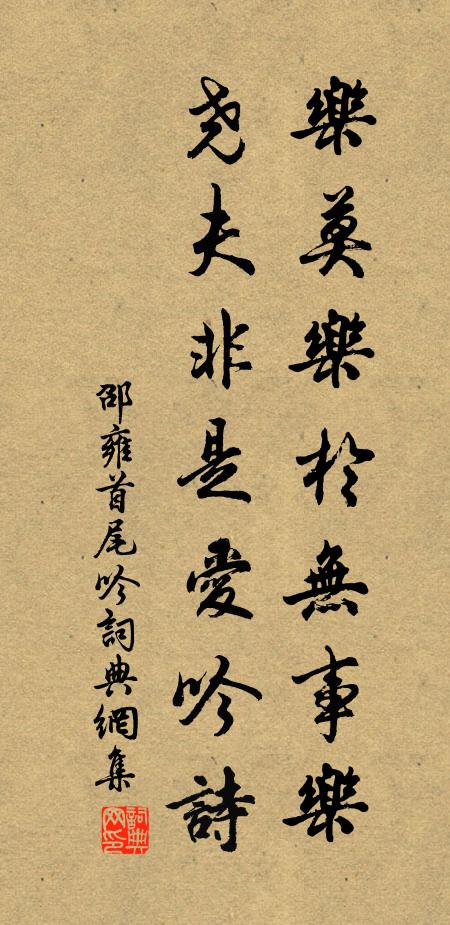 樂莫樂於無事樂
堯夫非是愛吟詩
邵雍首尾吟詞典網集
詞典网印